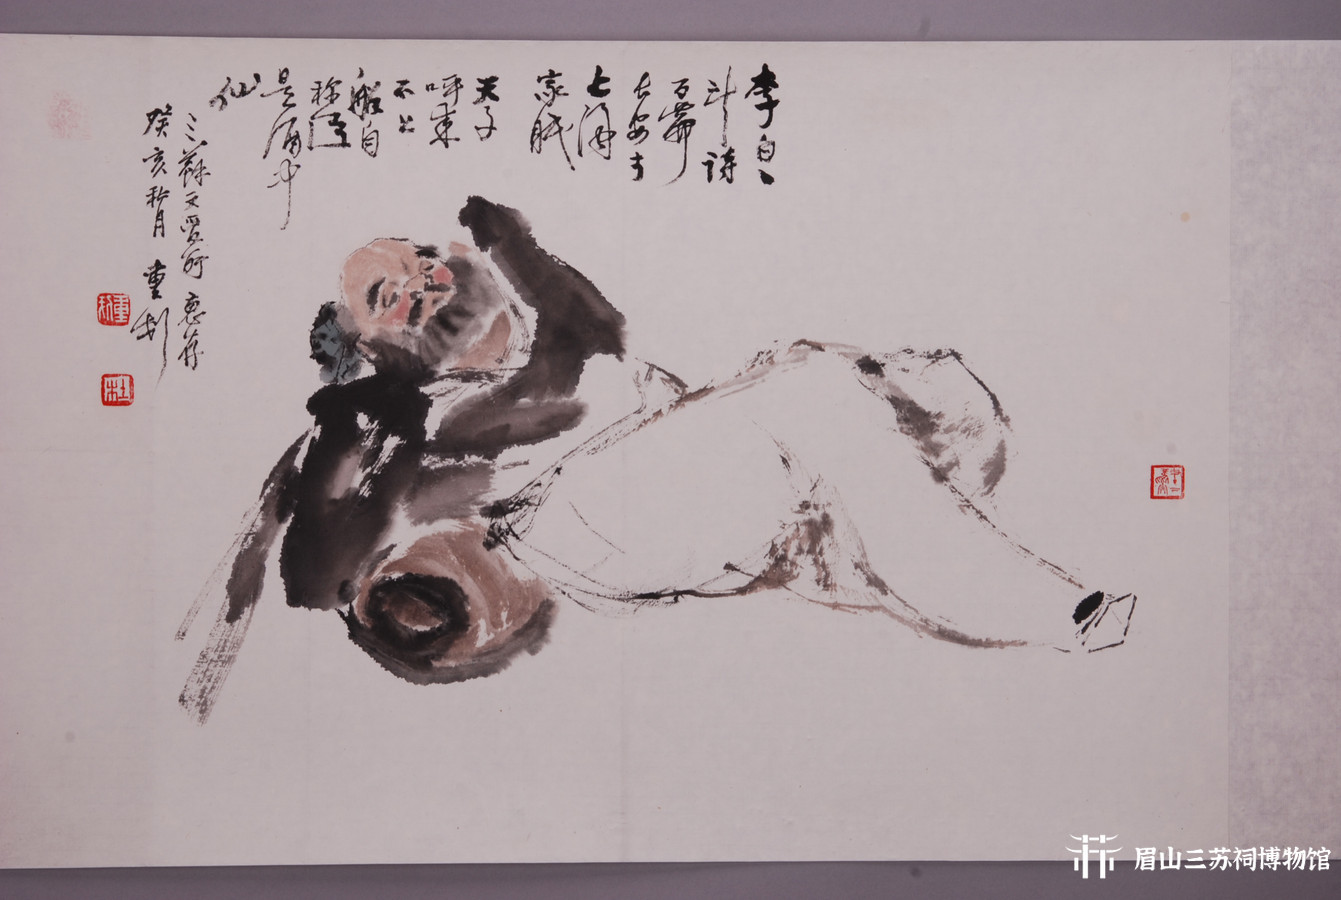 李白一
斗诗
百篇
长安市
上酒
家眠
天子
呼来
不上
船自
称臣
是酒中
仙
三蘇文管所 惠存
癸亥秋月 重划
杜
眉山三苏祠博物馆